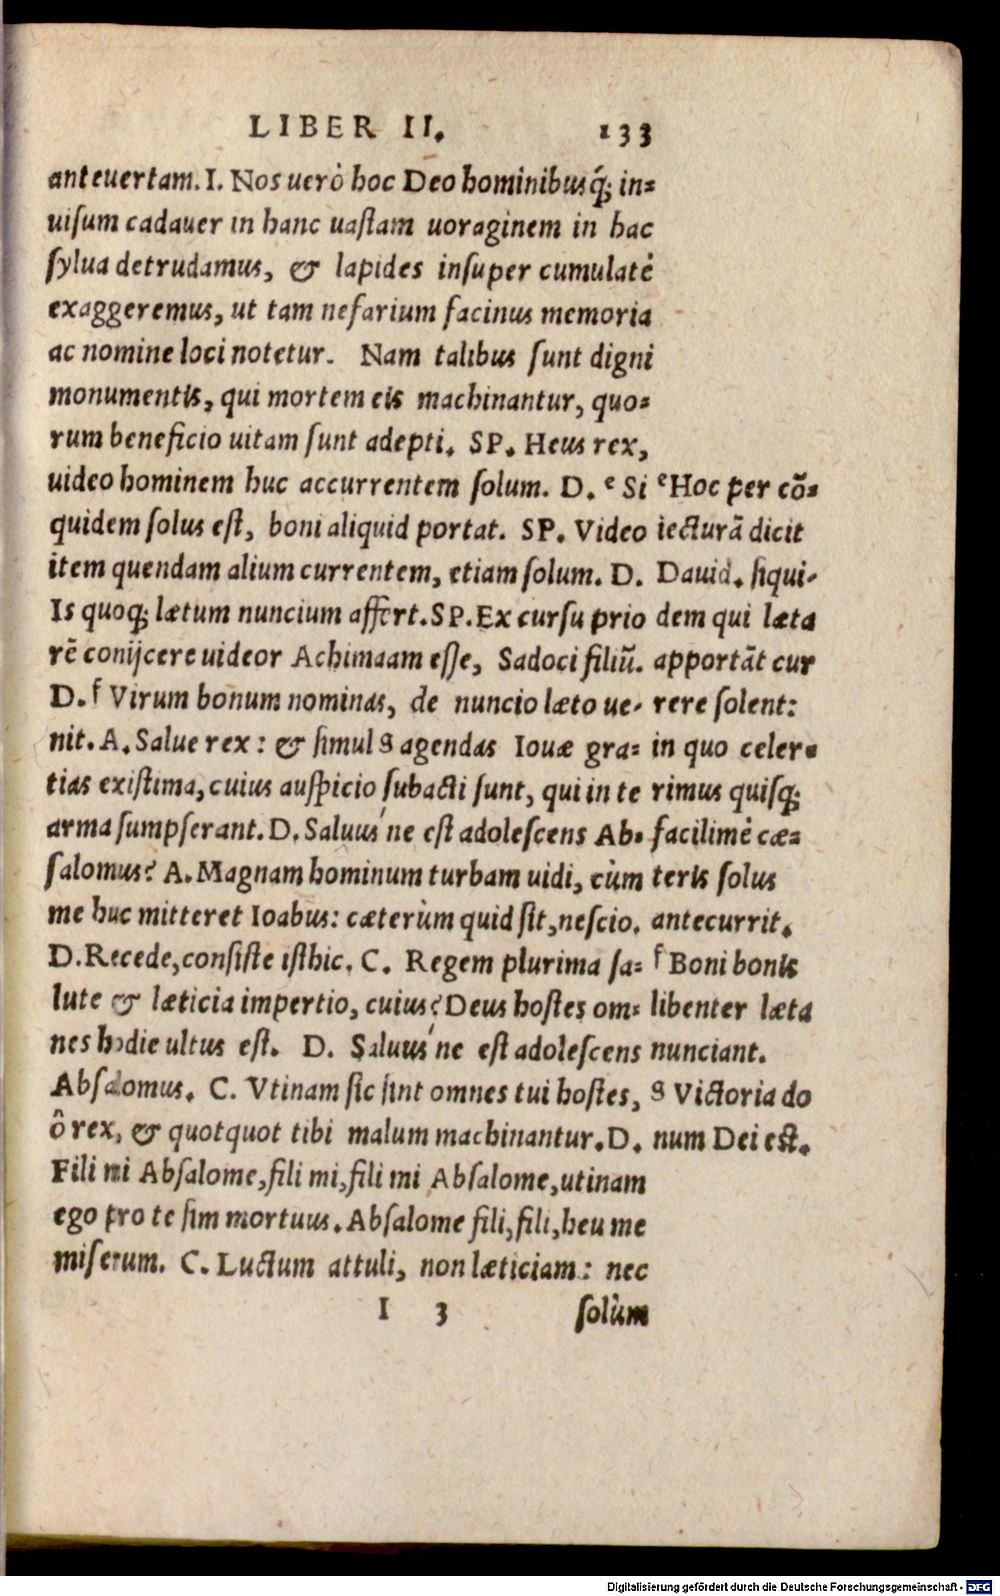 LIBER II. 133
anteuertam. I. Nos uerò hoc Deo hominibusq́; in=
uiſum cadauer in hanc uaſtam uoraginem in hac
ſylua detrudamus, & lapides inſuper cumulatè
exaggeremus, ut tam nefarium facinus memoria
ac nomine loci notetur. Nam talibus ſunt digni
monumentis, qui mortem eis machinantur, quo=
rum beneficio uitam ſunt adepti. SP. Heus rex,
uideo hominem huc accurrentem ſolum. D. ᵉ Si
quidem ſolus eſt, boni aliquid portat. SP. Video
item quendam alium currentem, etiam ſolum. D.
Is quoq; lætum nuncium affert. SP. Ex curſu prio
rē conijcere uideor Achimaam eſſe, Sadoci filiū.
D. ᶠ Virum bonum nominas, de nuncio læto ue-
nit. A. Salue rex: & ſimul ᵍ agendas Iouæ gra=
tias exiſtima, cuius auſpicio ſubacti ſunt, qui in te
arma ſumpſerant. D. Saluus'ne eſt adoleſcens Ab-
ſalomus? A. Magnam hominum turbam uidi, cùm
me huc mitteret Ioabus: cæterùm quid ſit, neſcio.
D. Recede, conſiſte iſthic. C. Regem plurima ſa=
lute & læticia impertio, cuius? Deus hoſtes om=
nes hodie ultus eſt. D. Saluus'ne eſt adoleſcens
Abſalomus. C. Vtinam ſic ſint omnes tui hoſtes,
ô rex, & quotquot tibi malum machinantur. D.
Fili mi Abſalome, fili mi, fili mi Abſalome, utinam
ego pro te ſim mortuus. Abſalome fili, fili, heu me
miſerum. C. Luctum attuli, non læticiam: nec
I 3 ſolùm
ᵉ Hoc per cō=
iecturā dicit
Dauid. ſiqui-
dem qui læta
apportāt cur
rere ſolent:
in quo celer=
rimus quiſq;
facilimè cæ=
teris ſolus
antecurrit.
ᶠ Boni bonis
libenter læta
nunciant.
ᵍ Victoria do
num Dei eſt.
Digitalisierung gefördert durch die Deutsche Forschungsgemeinschaft - DFG